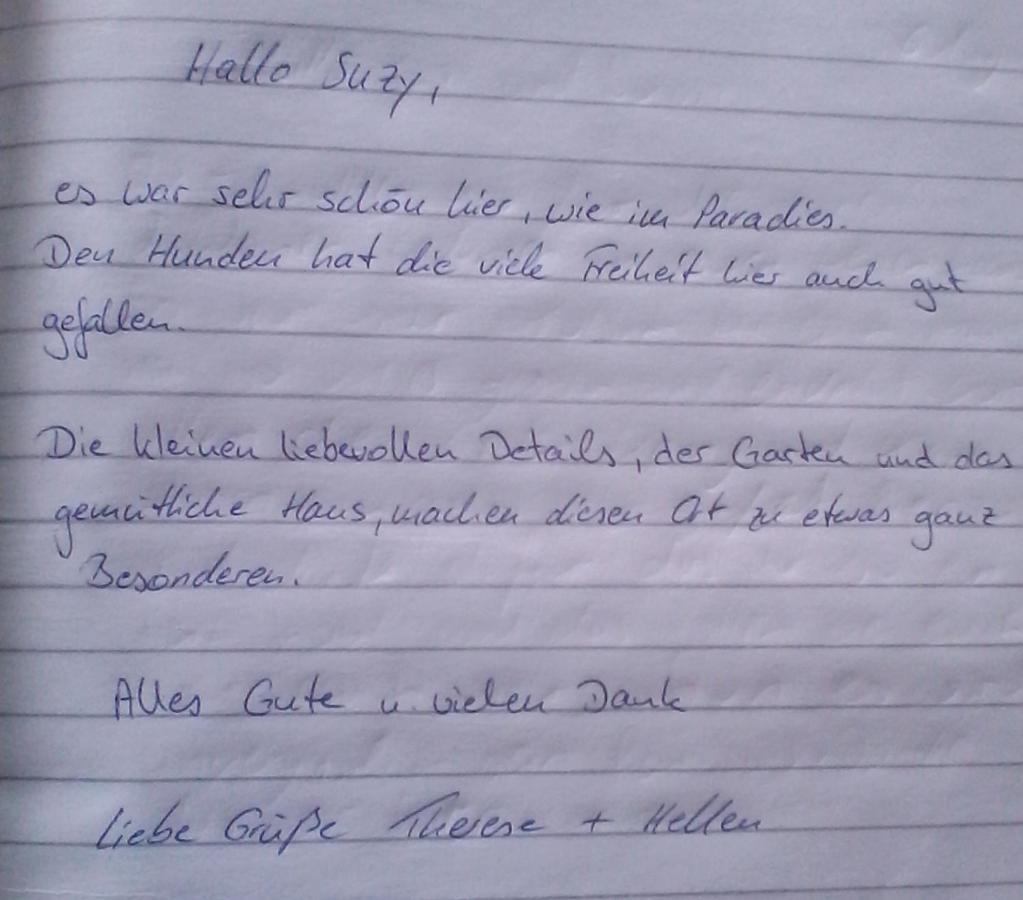 Hallo Suzy,
es war sehr schön hier, wie im Paradies.
Den Hunden hat die viele Freiheit hier auch gut
gefallen.
Die kleinen liebevollen Details, der Garten und das
gemütliche Haus, machen diesen Ort zu etwas ganz
Besonderen.
Alles Gute u. vielen Dank
Liebe Grüße Therese + Hellen